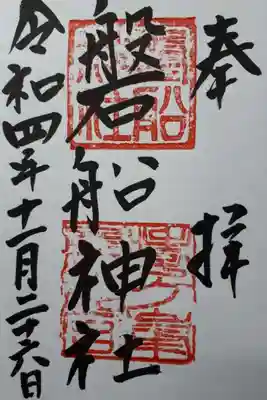 奉拝
磐船神社
令和四年十一月二十六日